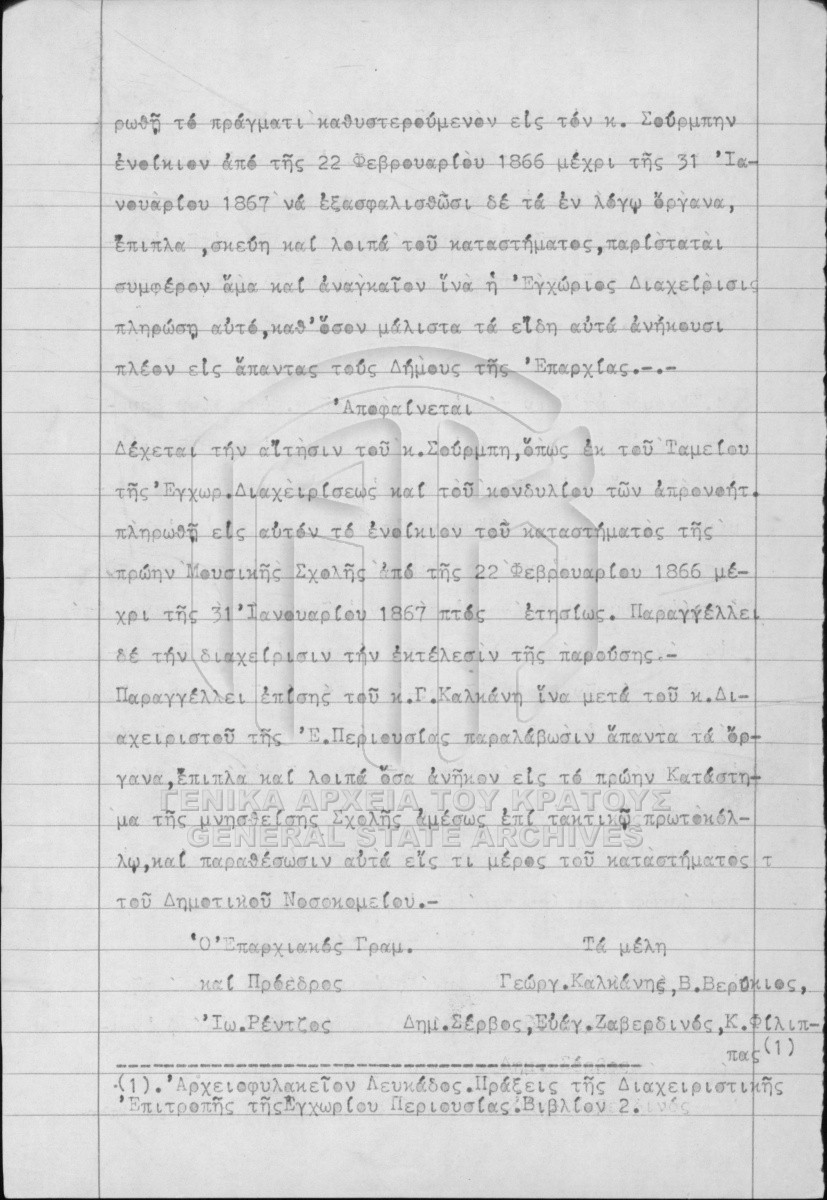 ρωθῇ τό πράγματι καθυστερούμενον εἰς τόν κ. Σούρμπην
ἐνοίκιον ἀπό τῆς 22 Φεβρουαρίου 1866 μέχρι τῆς 31 Ἰα-
νουαρίου 1867 νά ἐξασφαλισθῶσι δέ τά ἐν λόγῳ ὄργανα,
ἔπιπλα ,σκεύη καί λοιπά τοῦ καταστήματος,παρίσταται
συμφέρον ἅμα καί ἀναγκαῖον ἵνα ἡ Ἐγχώριος Διαχείρισις
πληρώση αὐτό,καθ'ὅσον μάλιστα τά εἴδη αὐτά ἀνήκουσι
πλέον εἰς ἅπαντας τούς Δήμους τῆς Ἐπαρχίας.-.-
Ἀποφαίνεται
Δέχεται τήν αἴτησιν τοῦ κ.Σούρμπη,ὅπως ἐκ τοῦ Ταμείου
τῆς Ἐγχωρ.Διαχειρίσεως καί τοῦ κονδυλίου τῶν ἀπρονοήτ.
πληρωθῇ εἰς αὐτόν τό ἐνοίκιον τοῦ καταστήματος τῆς
πρώην Μουσικῆς Σχολῆς ἀπό τῆς 22 Φεβρουαρίου 1866 μέ-
χρι τῆς 31 Ἰανουαρίου 1867 πτός ἐτησίως. Παραγγέλλει
δέ τήν διαχείρισιν τήν ἐκτέλεσιν τῆς παρούσης.-
Παραγγέλλει ἐπίσης τοῦ κ.Γ.Καλκάνη ἵνα μετά τοῦ κ.Δι-
αχειριστοῦ τῆς Ἐ.Περιουσίας παραλάβωσιν ἅπαντα τά ὄρ-
γανα,ἔπιπλα καί λοιπά ὅσα ἀνῆκον εἰς τό πρώην Κατάστη-
ΓΕΝΙΚΑ ΑΡΧΕΙΑ ΤΟΥ ΚΡΑΤΟΥΣ
μα τῆς μνησθείσης Σχολῆς ἀμέσως ἐπί τακτικῷ πρωτοκόλ-
GENERAL STATE ARCHIVES
λῳ,καί παραθέσωσιν αὐτά εἰς τι μέρος τοῦ καταστήματος τ
τοῦ Δημοτικοῦ Νοσοκομείου.-
Ὁ Ἐπαρχιακός Γραμ. Τά μέλη
καί Πρόεδρος Γεώργ.Καλκάνης,Β.Βερύκιος,
Ἰω.Ρέντζος Δημ.Σέρβος,Εὐάγ.Ζαβερδινός,Κ.Φίλιπ-
πας(1)
(1).Ἀρχειοφυλακεῖον Λευκάδος.Πράξεις τῆς Διαχειριστικῆς
Ἐπιτροπῆς τῆςἘγχωρίου Περιουσίας.Βιβλίον 2.